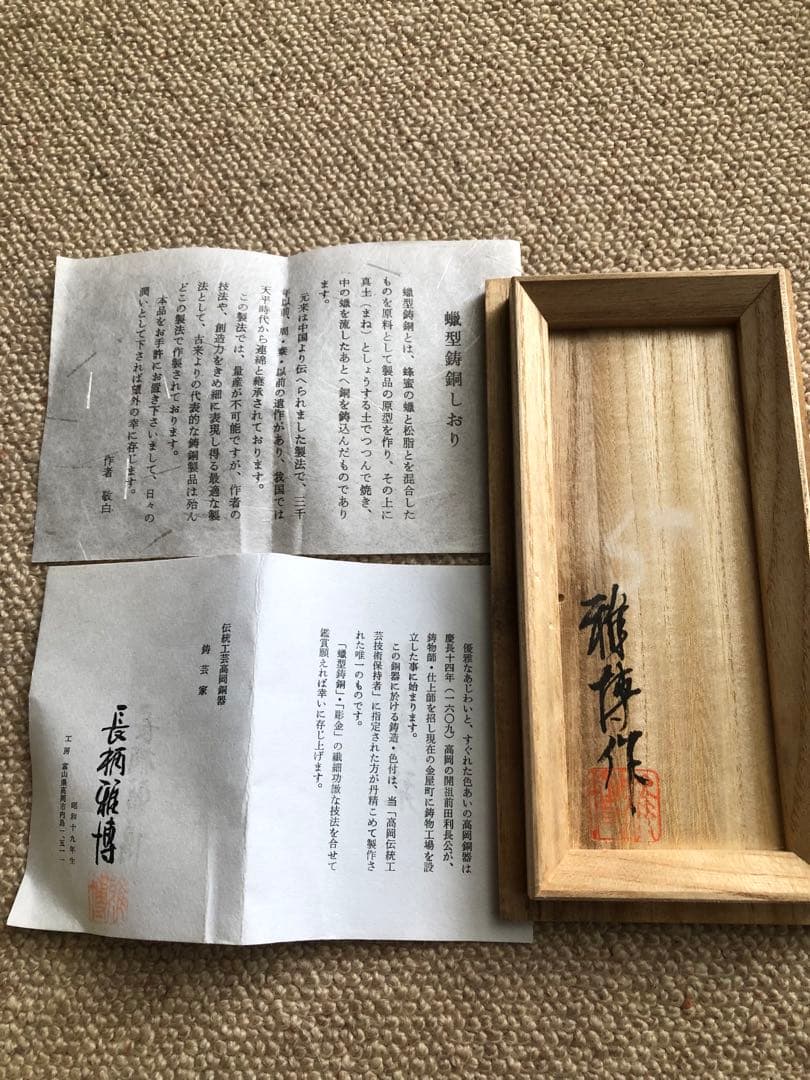 蠟型鋳銅しおり
蠟型鋳銅とは、蜂蜜の蠟と松脂とを混合した
ものを原料として製品の原型を作り、その上に
真土(まね)としょうする土でつつんで焼き、
中の蠟を流したあとへ銅を鋳込んだものであり
ます。
元来は中国より伝へられました製法で、三千
年以前、周・秦・以前の遺作があり、我国では
天平時代から連綿と継承されております。
この製法では、量産が不可能ですが、作者の
技法や、創造力をきめ細に表現し得る最適な製
法として、古来よりの代表的な鋳銅製品は殆ん
どこの製法で作製されております。
本品をお手許にお置き下さいまして、日々の
潤いとして下されば望外の幸に存じます。
作者 敬白
優雅なあじわいと、すぐれた色あいの高岡銅器は
慶長十四年(一六〇九)高岡の開祖前田利長公が、
鋳物師・仕上師を招し現在の金屋町に鋳物工場を設
立した事に始まります。
この銅器に於ける鋳造・色付は、当「高岡伝統工
芸技術保持者」に指定された方が丹精こめて製作さ
れた唯一のものです。
「蠟型鋳銅」・「彫金」の繊細功緻な技法を合せて
鑑賞願えれば幸いに存じ上げます。
伝統工芸高岡銅器
鋳芸家
長柄雅博
昭和十九年生
工房 富山県高岡市内島一、五一一
雅博作